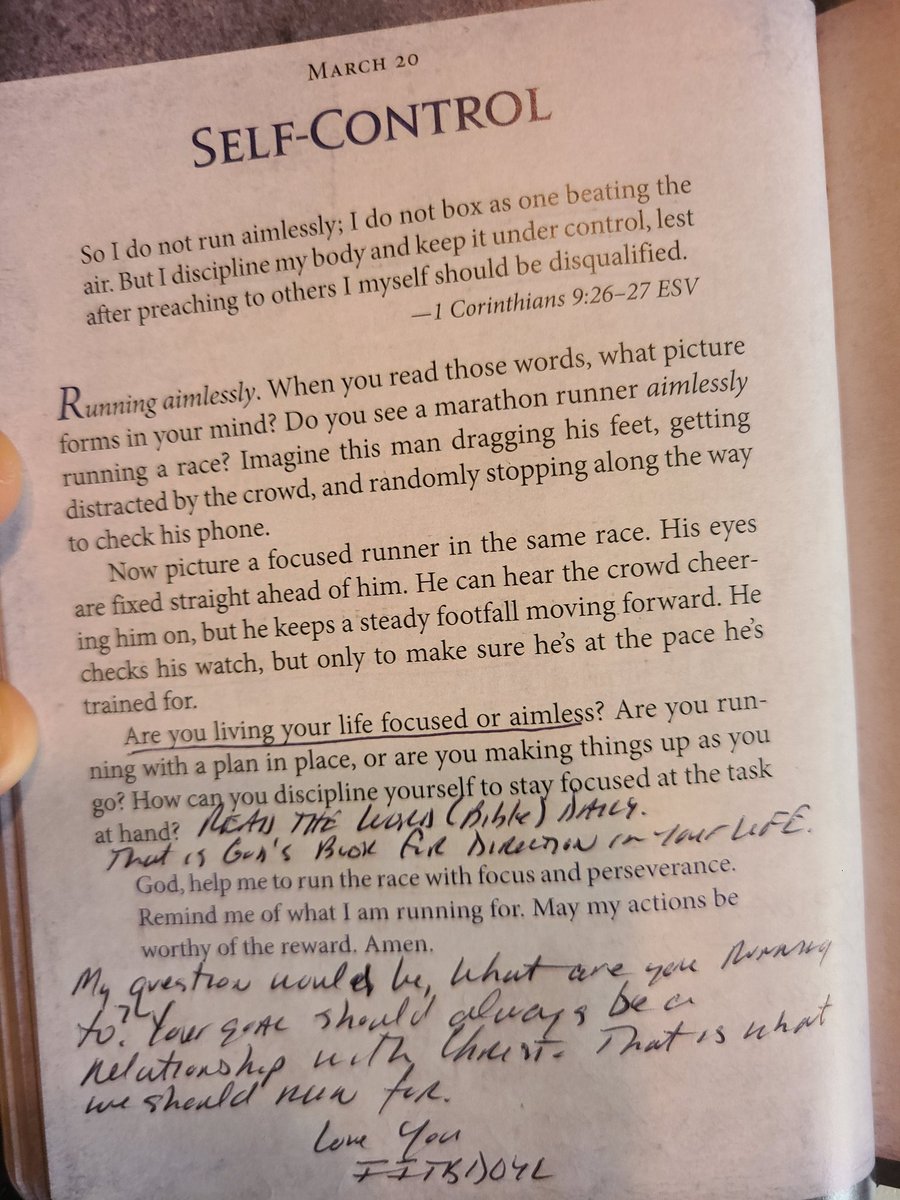 MARCH 20
SELF-CONTROL
So I do not run aimlessly; I do not box as one beating the
air. But I discipline my body and keep it under control, lest
after preaching to others I myself should be disqualified.
—1 Corinthians 9:26–27 ESV
Running aimlessly. When you read those words, what picture
forms in your mind? Do you see a marathon runner aimlessly
running a race? Imagine this man dragging his feet, getting
distracted by the crowd, and randomly stopping along the way
to check his phone.
Now picture a focused runner in the same race. His eyes
are fixed straight ahead of him. He can hear the crowd cheer-
ing him on, but he keeps a steady footfall moving forward. He
checks his watch, but only to make sure he's at the pace he's
trained for.
Are you living your life focused or aimless? Are you run-
ning with a plan in place, or are you making things up as you
go? How can you discipline yourself to stay focused at the task
at hand? READ THE WORD (Bible) DAILY.
That is God's Book FOR DIRECTION in Your LIFE.
God, help me to run the race with focus and perseverance.
Remind me of what I am running for. May my actions be
worthy of the reward. Amen.
My question would be, what are you Running
to? Your goal should always be a
Relationship with Christ. That is what
we should run for.
Love You